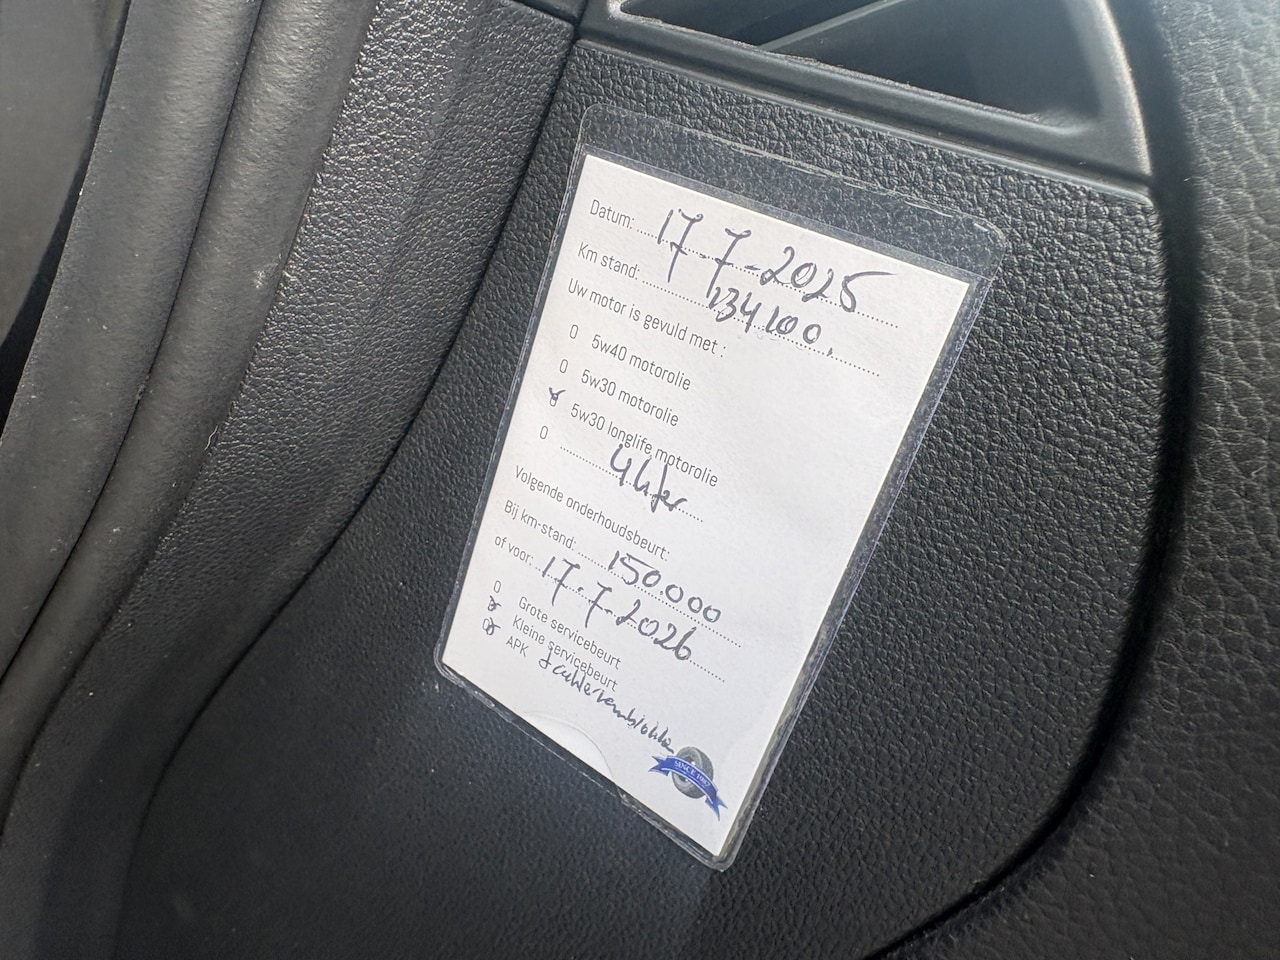 Datum: 17-7-2025
Km stand: 134100.
Uw motor is gevuld met :
O 5w40 motorolie
O 5w30 motorolie
O 5w30 longlife motorolie
O 4 liter
Volgende onderhoudsbeurt:
Bij km-stand: 150.000
of voor: 17-7-2026
O Grote servicebeurt
O Kleine servicebeurt
O APK
SINCE 1987